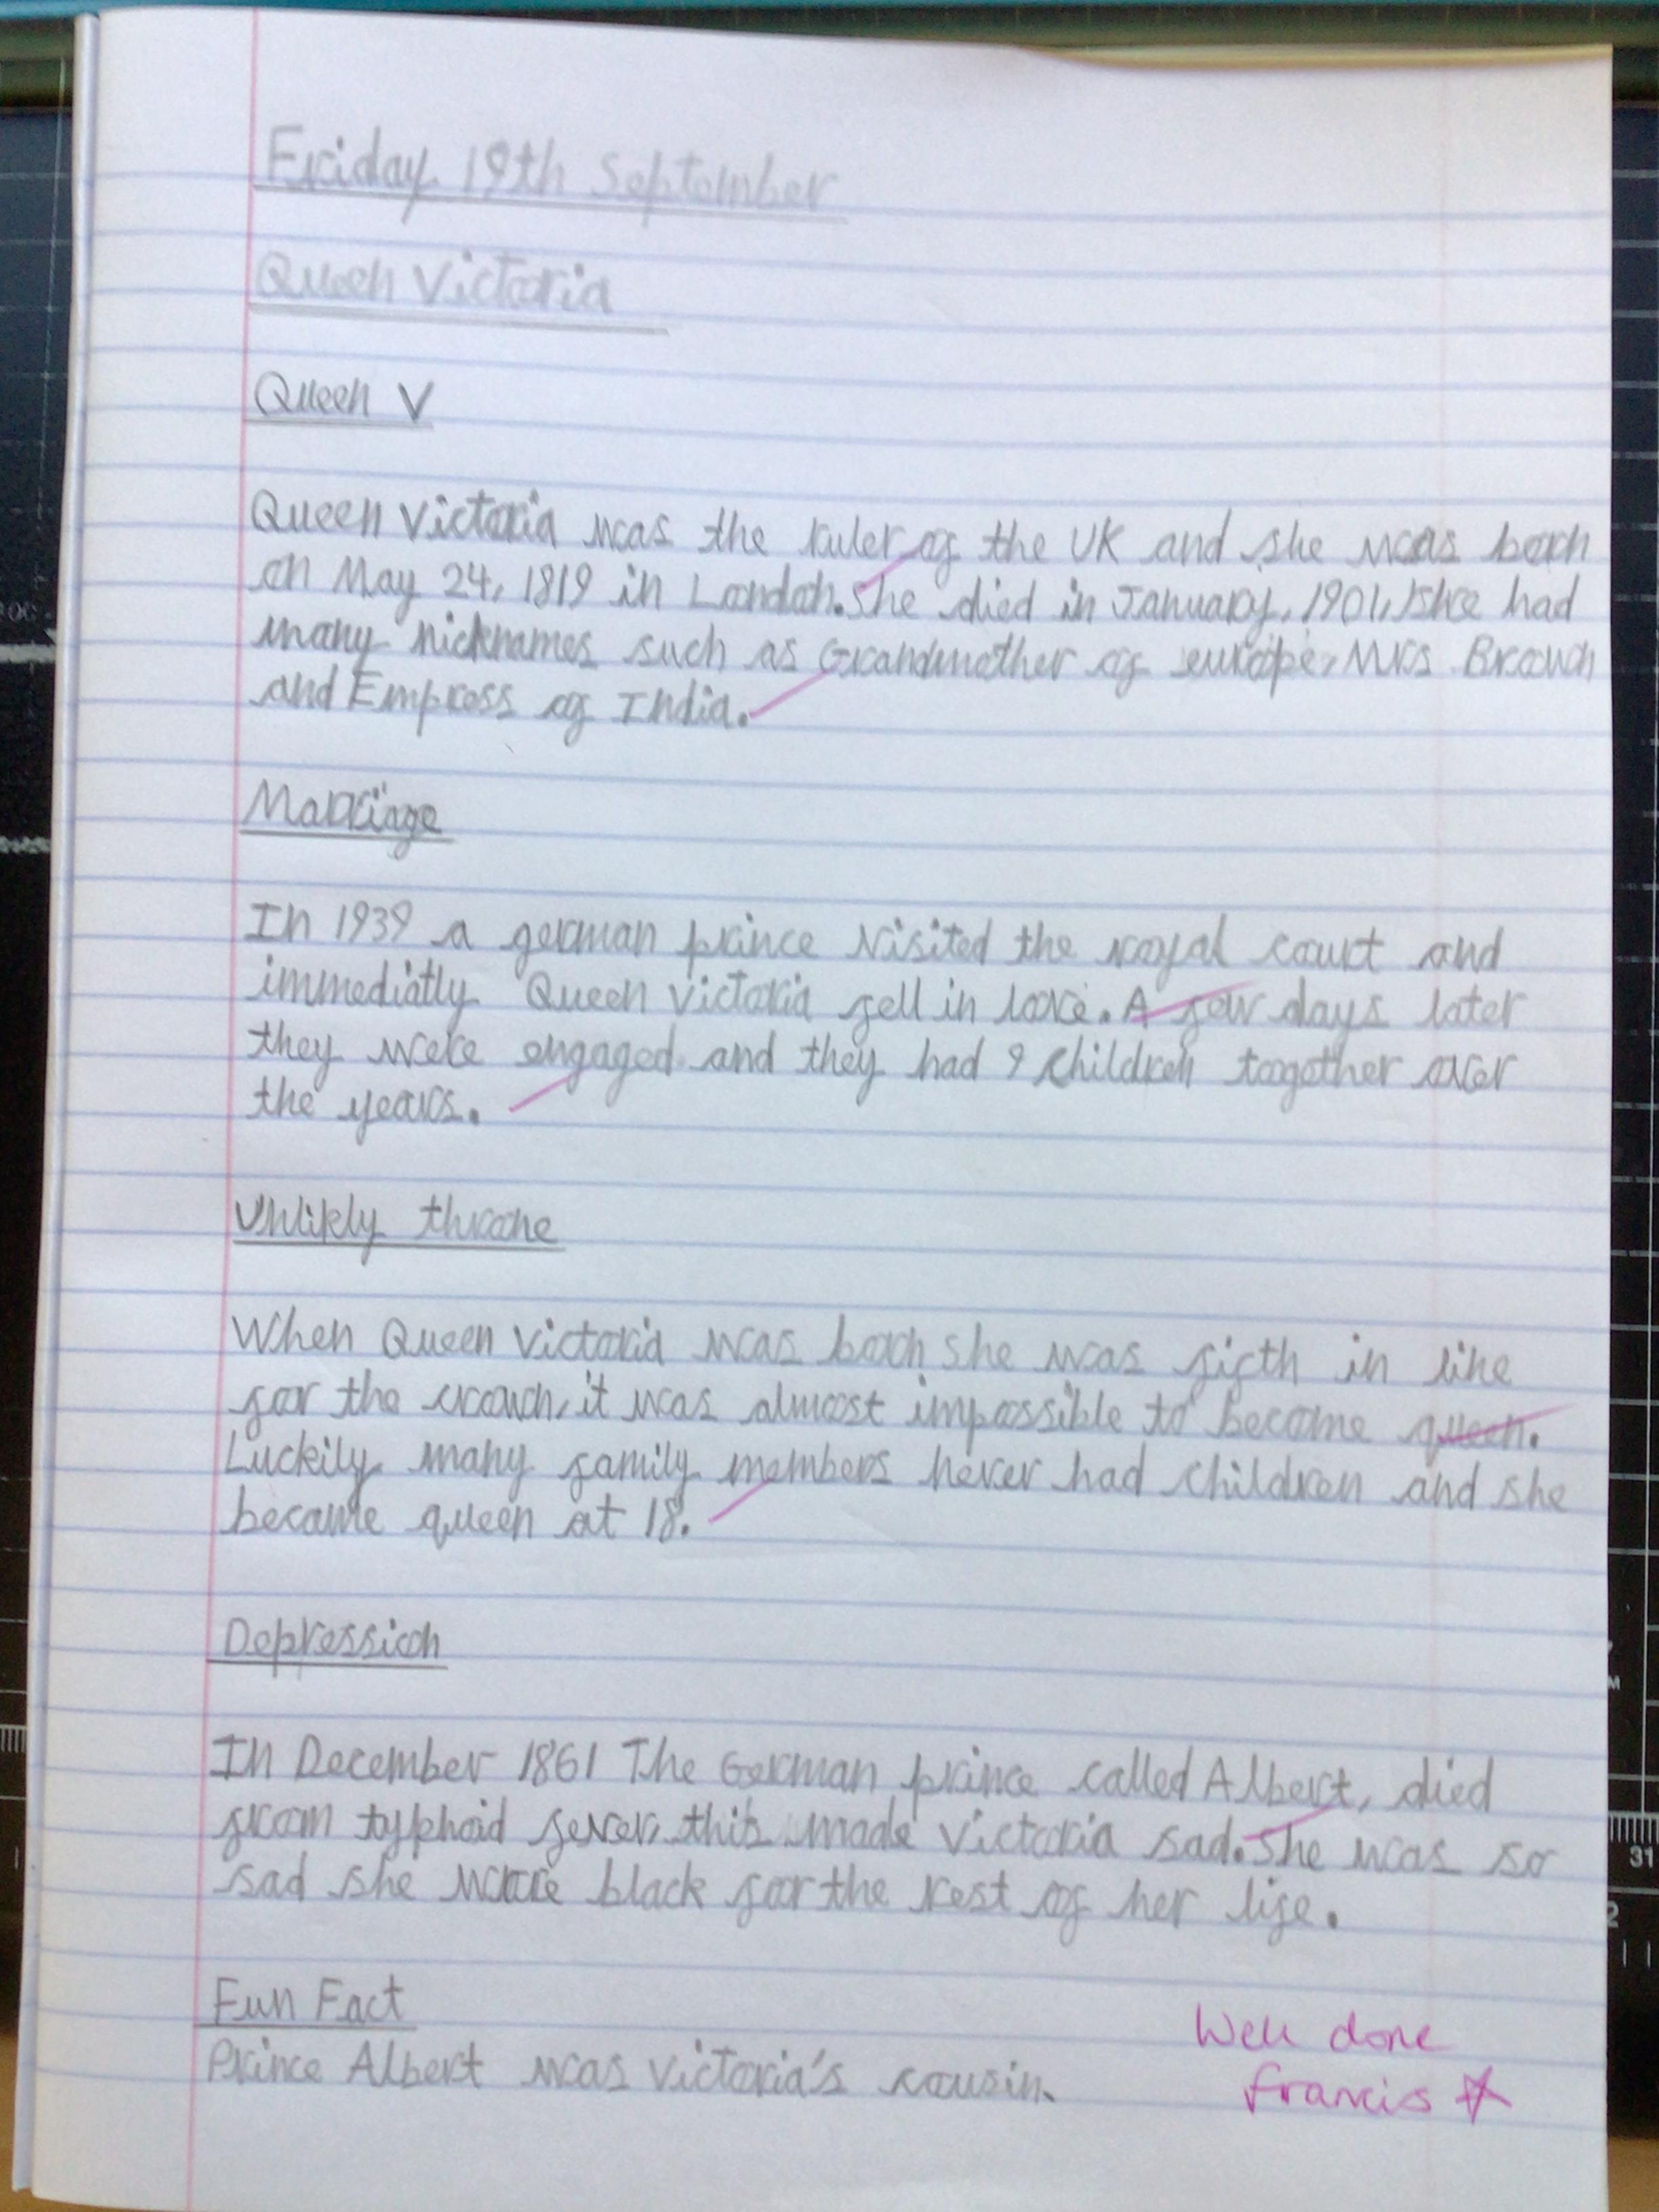 Friday 19th September
Queen Victoria
Queen V
Queen Victoria was the ruler of the UK and she was born
on May 24, 1819 in London. She died in January, 1901, she had
many nicknames such as Grandmother of europe, Mrs Brown
and Empress of India.
Marriage
In 1939 a german prince visited the royal court and
immediatly Queen Victoria fell in love. A few days later
they were engaged and they had 9 children together over
the years.
Unlikly throne
When Queen Victoria was born she was fifth in line
for the crown, it was almost impossible to become queen.
Luckily many family members never had children and she
became queen at 18.
Depression
In December 1861 The German prince called Albert, died
from typhoid fever, this made Victoria sad. She was so
sad she wore black for the rest of her life.
Fun Fact
Prince Albert was Victoria's cousin.
Well done
Francis